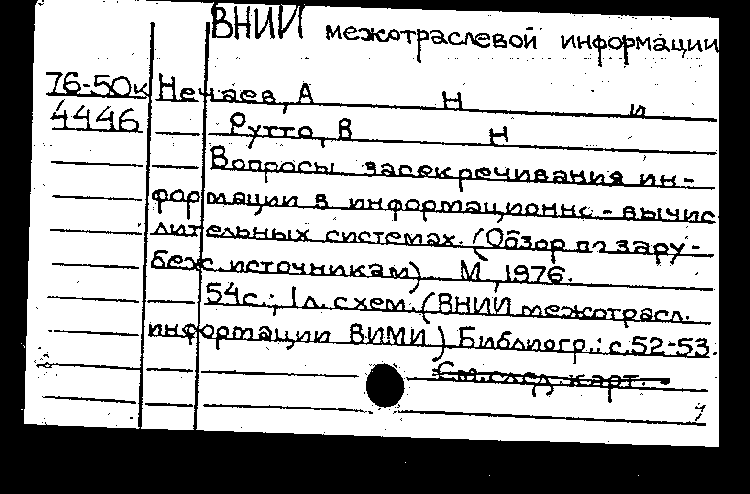 ВНИИ межотраслевой информации
76-50к Нечаев, А Н и
4446 Рутто, В Н
Вопросы засекречивания ин-
формации в информационно-вычис
лительных системах. (Обзор по зару-
беж. источникам) М, 1976.
54с.; 1л. схем. (ВНИИ межотрасл.
информации ВИМИ) Библиогр.: с.52-53.
См. след. карт.